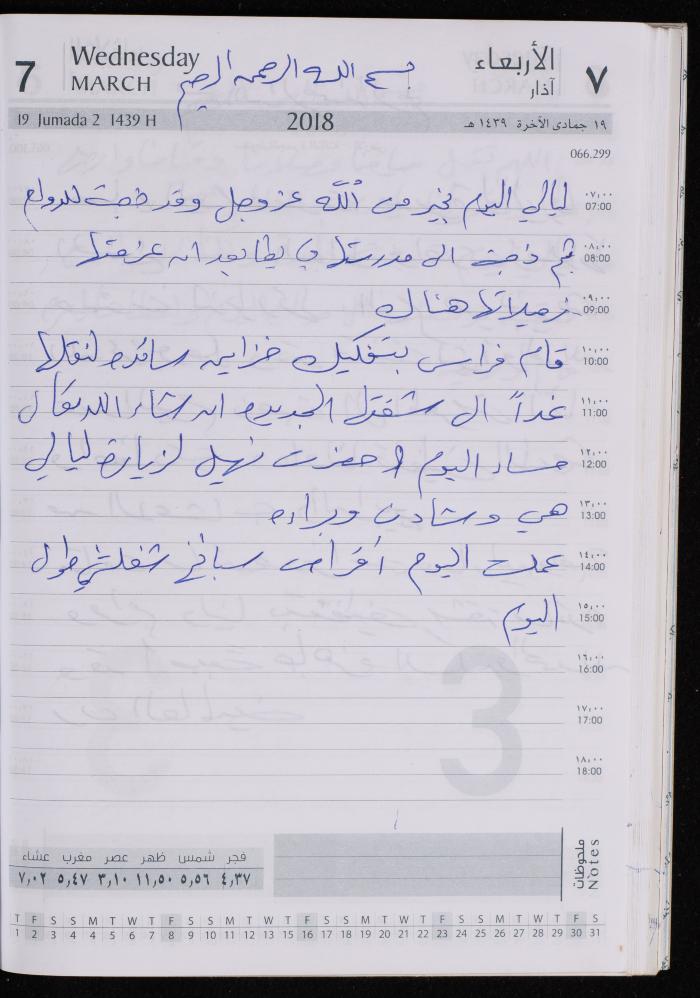 7 Wednesday MARCH بسم الله الرحمن الرحيم الأربعاء آذار ٧
19 Jumada 2 1439 H 2018 ١٩ جمادى الآخرة ١٤٣٩ هـ
066.299
ليالي اليوم بخير من الله عز وجل وقد ذهبت للدوام ٠٧,٠٠ 07:00
ثم ذهبت الى مدرستها في يطا بعد ان عزمتها ٠٨,٠٠ 08:00
زميلاتها هناك ٠٩,٠٠ 09:00
قام فراس بتفكيك خزاين سائده لنقلها ١٠,٠٠ 10:00
غداً الى شقتها الجديده ان شاء الله تعالى ١١,٠٠ 11:00
مساء اليوم حضرت نهيل لزيارة ليالي ١٢,٠٠ 12:00
هي وشادن وبراءه ١٣,٠٠ 13:00
عملت اليوم أقراص سبانخ شغلتني طول ١٤,٠٠ 14:00
اليوم ١٥,٠٠ 15:00
١٦,٠٠ 16:00
١٧,٠٠ 17:00
١٨,٠٠ 18:00
3
فجر شمس ظهر عصر مغرب عشاء
٤,٣٧ ٥,٥٦ ١١,٥٠ ٣,١٠ ٥,٤٧ ٧,٠٢
ملحوظات Notes
T F S S M T W T F S S M T W T F S S M T W T F S S M T W T F S
1 2 3 4 4 5 6 7 8 9 10 11 12 13 14 15 16 17 18 19 20 21 22 23 24 25 26 27 28 29 30 31